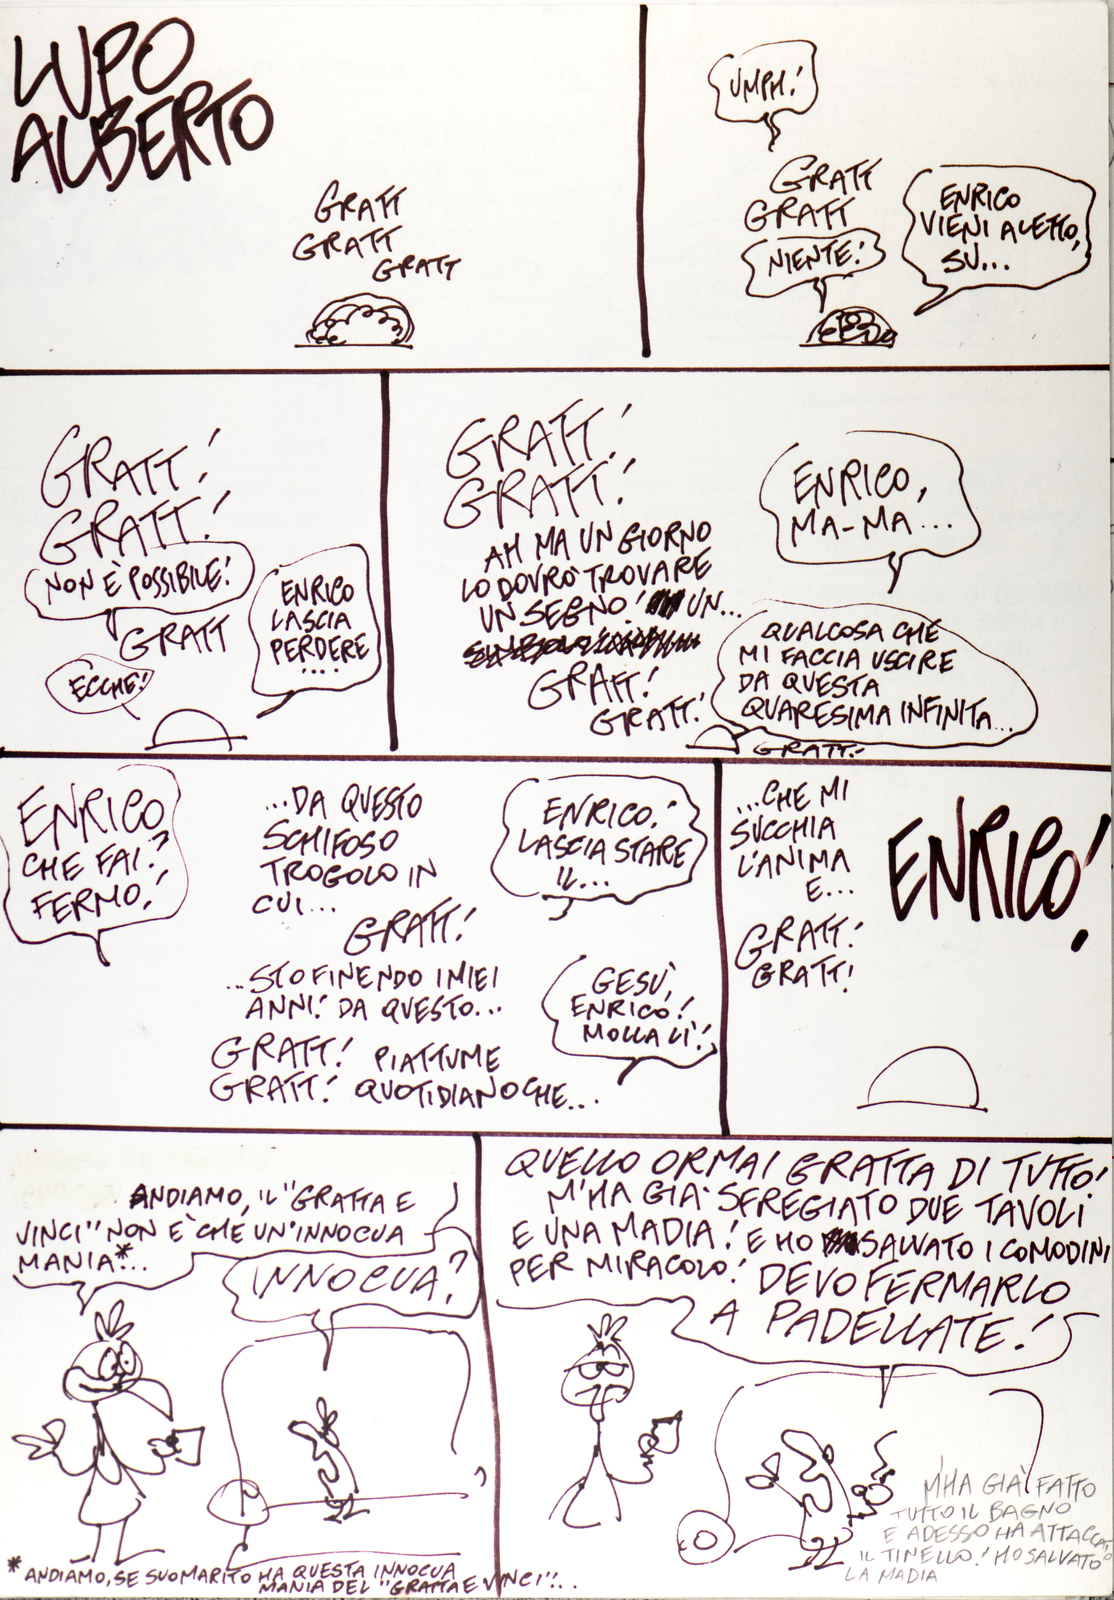 LUPO
ALBERTO
GRATT
GRATT
GRATT
UMPH!
GRATT
GRATT
NIENTE!
ENRICO
VIENI A LETTO,
SU...
GRATT!
GRATT!
NON È POSSIBILE!
GRATT
ECCHE!
ENRICO
LASCIA
PERDERE
....
GRATT!
GRATT!
AH MA UN GIORNO
LO DOVRÒ TROVARE
UN SEGNO! UN...
GRATT!
GRATT!
ENRICO,
MA-MA...
QUALCOSA CHE
MI FACCIA USCIRE
DA QUESTA
QUARESIMA INFINITA...
GRATT!
ENRICO
CHE FAI?
FERMO!
...DA QUESTO
SCHIFOSO
TROGOLO IN
CUI...
GRATT!
...STO FINENDO I MIEI
ANNI! DA QUESTO...
GRATT! PIATTUME
GRATT! QUOTIDIANO CHE...
ENRICO!
LASCIA STARE
IL...
GESÙ,
ENRICO!
MOLLA LÌ!
...CHE MI
SUCCHIA
L'ANIMA
E...
GRATT!
GRATT!
ENRICO!
ANDIAMO, IL "GRATTA E
VINCI" NON È CHE UN'INNOCUA
MANIA*...
INNOCUA?
*ANDIAMO, SE SUO MARITO HA QUESTA INNOCUA
MANIA DEL "GRATTA E VINCI"...
QUELLO ORMAI GRATTA DI TUTTO!
M'HA GIÀ SFREGIATO DUE TAVOLI
E UNA MADIA! E HO SALVATO I COMODINI
PER MIRACOLO! DEVO FERMARLO
A PADELLATE!
M'HA GIÀ FATTO
TUTTO IL BAGNO
E ADESSO HA ATTACCATO
IL TINELLO! HO SALVATO
LA MADIA